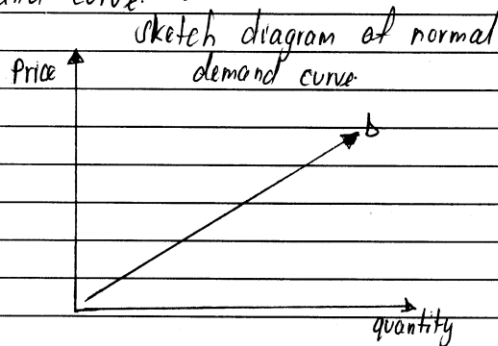 curve.
sketch diagram of normal
demand curve.
Price
D
quantity